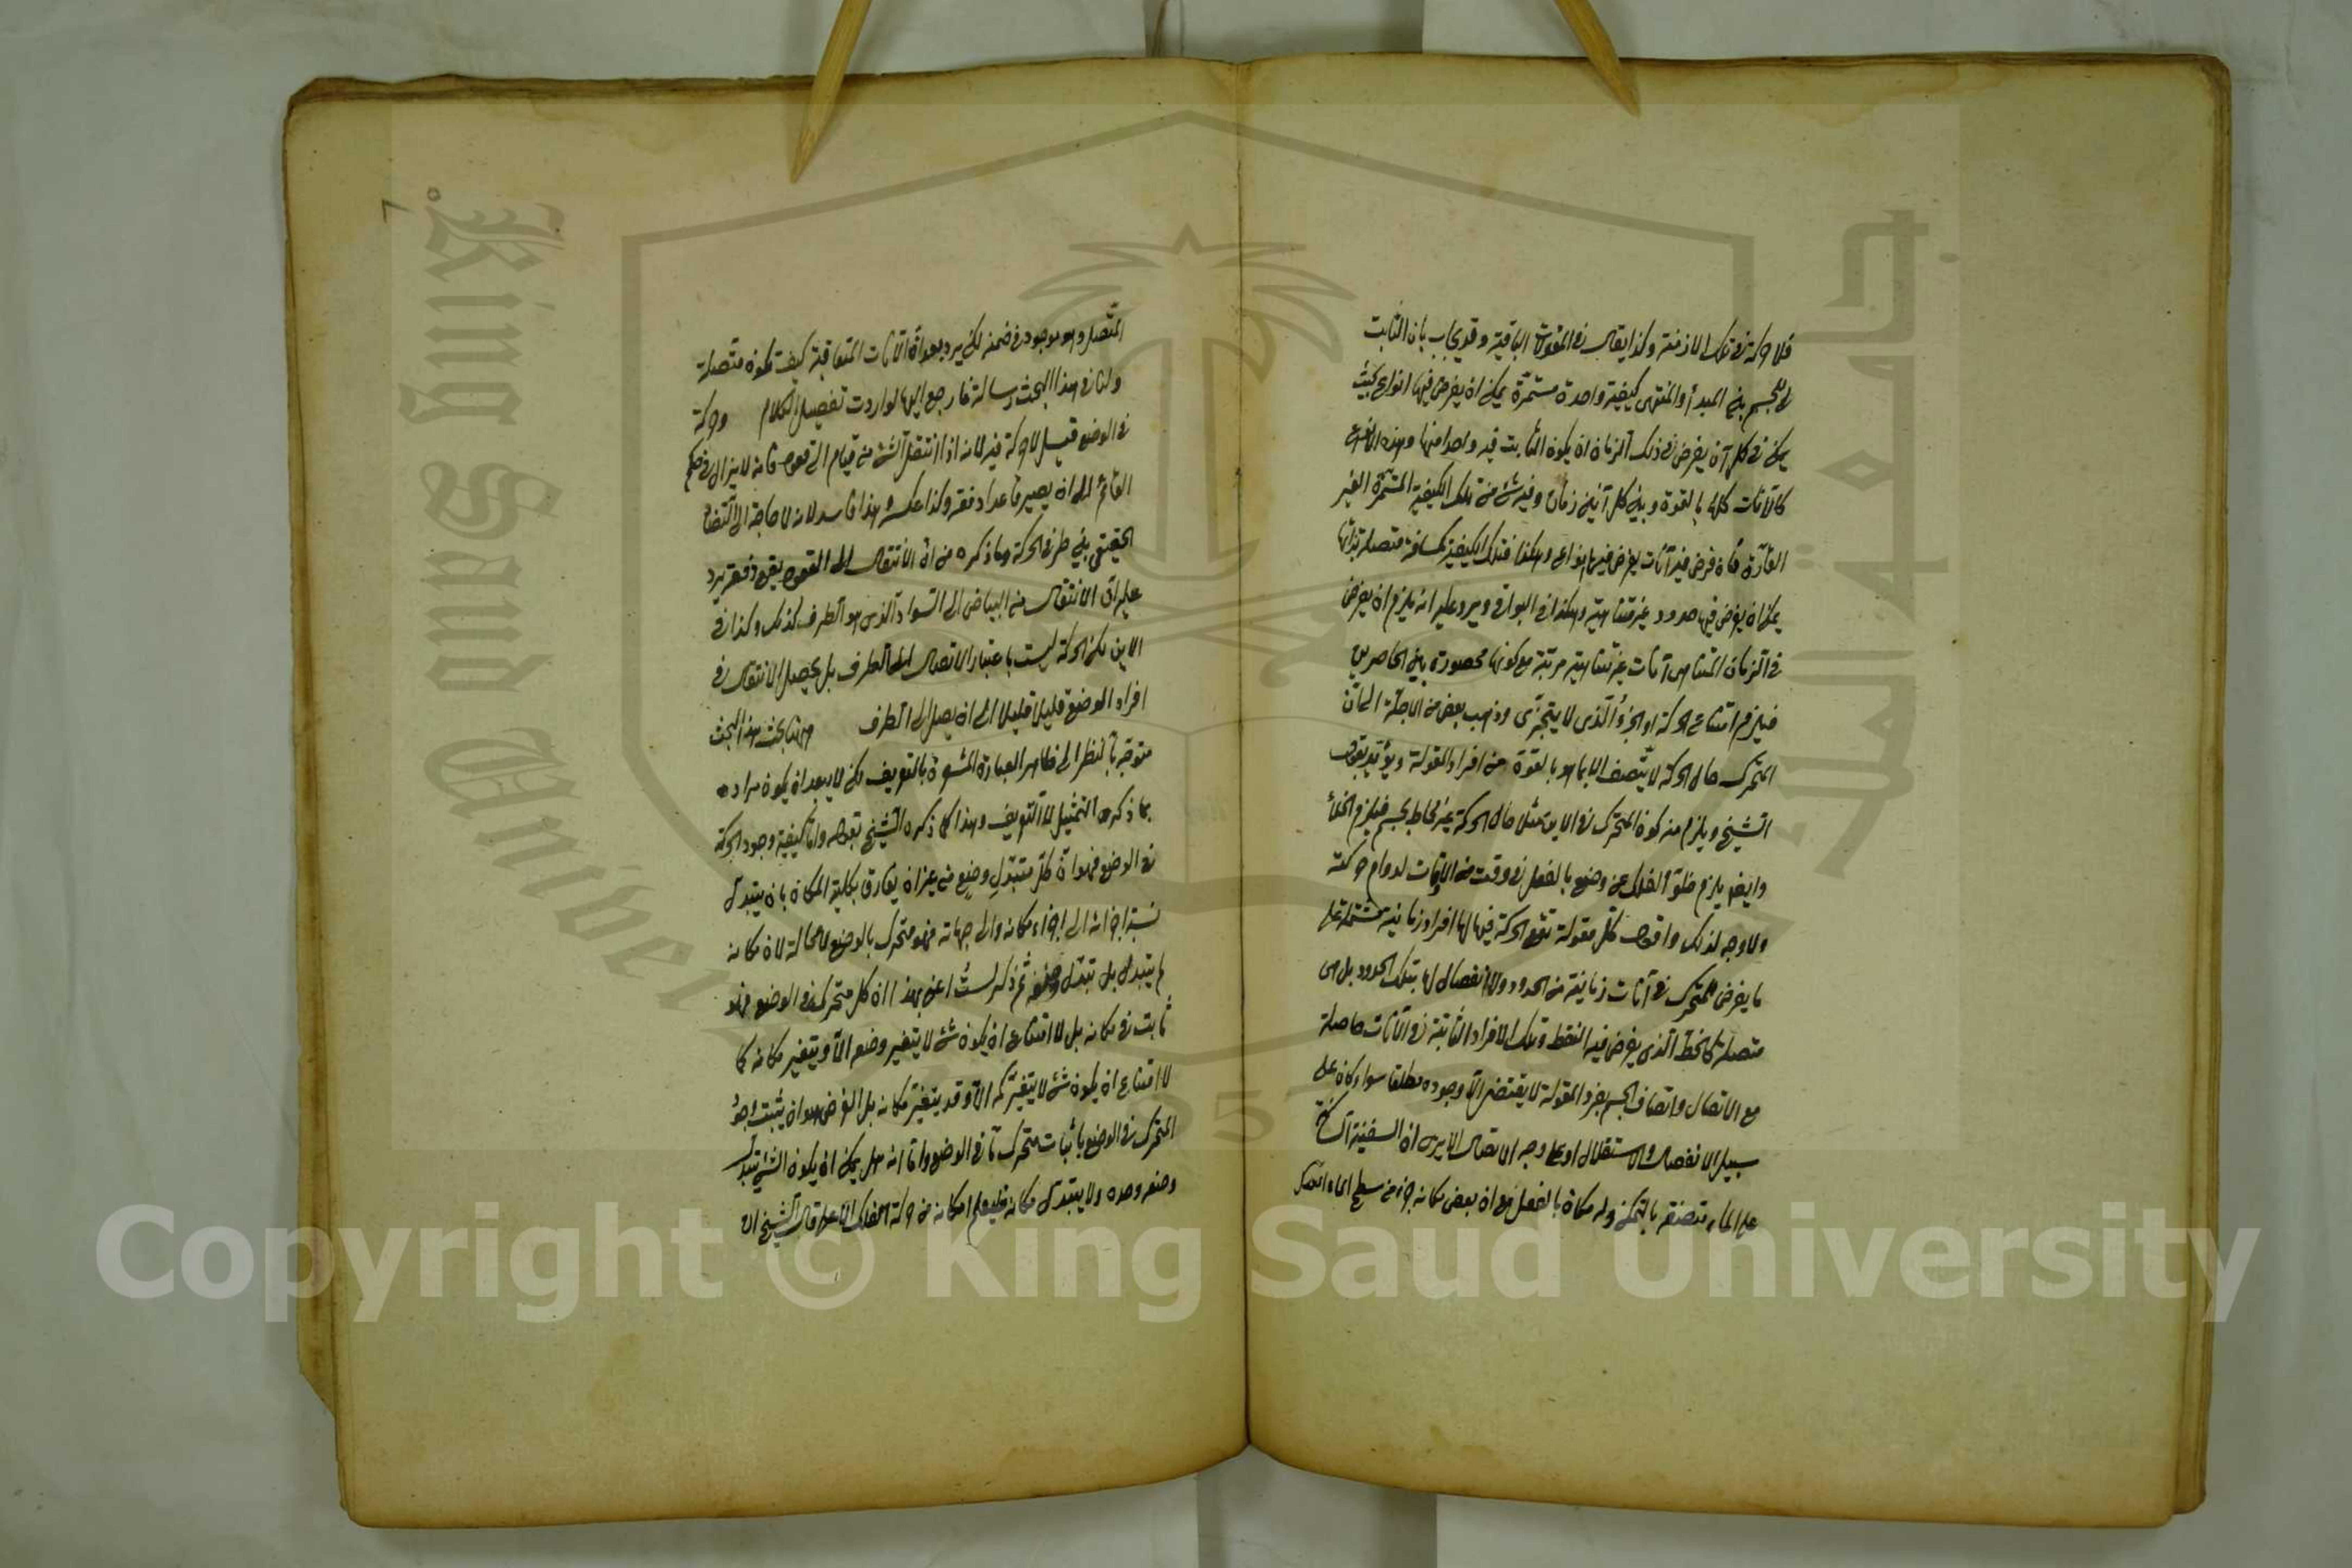 فلا حركة في تلك الازمنة وكذا يقال في المقولات الباقية وقد يجاب بان الثابت
للجسم بين المبدأ والمنتهى كيفية واحدة مستمرة يمكن ان يفرض فيها انواع بحيث
يمكن في كل آن يفرض في ذلك الزمان ان يكون الثابت فيه واحدا منها وهذه الانواع
كالآنات كلها بالقوة وبين كل آنين زمان وفيه شئ من تلك الكيفية المستمرة الغير
القارة فان فرض فيه آنات يفرض فيها انواع وهكذا فتلك الكيفية كمسافة متصلة بذاتها
يمكن ان يفرض فيها حدود غير متناهية وهكذا في البواقي ويرد عليه انه يلزم ان يفرض
في الزمان المتناهى آنات غير متناهية مرتبة مع كونها محصورة بين الحاصرين
فيلزم امتناع الحركة او الجزؤ الذى لا يتجزى وذهب بعض من الاجلة الى ان
المتحرك حال الحركة لا يتصف الا بما هو بالقوة من افراد المقولة ويؤيد بقول
الشيخ ويلزم منه كون المتحرك في الاين مثلا حال الحركة غير محاط بجسم فيلزم الخلأ
وايضا يلزم خلو الفلك عن وضع بالفعل في وقت من الاوقات لدوام حركته
ولا وجه لذلك واقول كل مقولة تقع الحركة فيها لها افراد زمانية مشتملة على
ما يفرض للمتحرك في آنات زمانية من الحدود ولا انفصال لها بتلك الحدود بل هى
متصلة كالخط الذى يفرض فيه النقط وتلك الافراد الثابتة في الآنات حاصلة
مع الاتصال واتصاف الجسم بفرد المقولة لا يقتضى الا وجوده مطلقا سواء كان على
سبيل الانفصال والاستقلال او على وجه الاتصال الا يرى ان السفينة
على الماء متصفة بالتمكن وله مكان بالفعل مع ان بعض مكانه جزء من سطح الماء المتصل
٧
المتصل وهو موجود في ضمنه لكن يرد بعد ان الآنات المتعاقبة كيف تكون متصلة
ولنا في هذا البحث رسالة فارجع اليها لو اردت تفصيل الكلام وحركة
في الوضع قيل لا حركة فيه لانه اذا انتقل الشئ من قيام الى قعود فانه لا يزال في حكم
القائم الى ان يصير قاعدا دفعة وكذا عكسه وهذا فاسد لانه لا حاجة الى التضاد
الحقيقى بين طرفى الحركة وما ذكره من ان الانتقال الى القعود يقع دفعة يرد
عليه ان الانتقال من البياض الى السواد الذى هو الطرف كذلك وكذا في
الاين لكن الحركة ليست باعتبار الاتصال الى الطرف بل يحصل الانتقال في
افراد الوضع قليلا قليلا الى ان يصل الى الطرف وههنا بحث هذا البحث
متوجه بالنظر الى ظاهر العبارة المشعرة بالتعريف لكن لا يبعد ان يكون مراده
بما ذكره التمثيل لا التعريف وهذا كما ذكره الشيخ بقوله واما كيفية وجود الحركة
في الوضع فهو ان كل متبدل وضع من غير ان يفارق بكلية المكان بان يتبدل
نسبة اجزائه الى اجزاء مكانه والى جهاته فهو متحرك بالوضع لا محالة لان مكانه
لم يتبدل بل تبدل وضعه ثم ذكر لست اعنى بهذا ان كل متحرك في الوضع فهو
ثابت في مكانه بل لا امتناع ان يكون شئ لا يتغير وضعه الا ويتغير مكانه كما
لا امتناع ان يكون شئ لا يتغير كمه الا وقد يتغير مكانه بل الغرض هو ان يثبت وجود
المتحرك في الوضع باثبات متحرك ما في الوضع واما انه هل يمكن ان يكون الشئ يتبدل
وضعه وحده ولا يتبدل مكانه فليعلم امكانه من حركة الفلك الاعلى قال الشيخ ان
Copyright © King Saud University